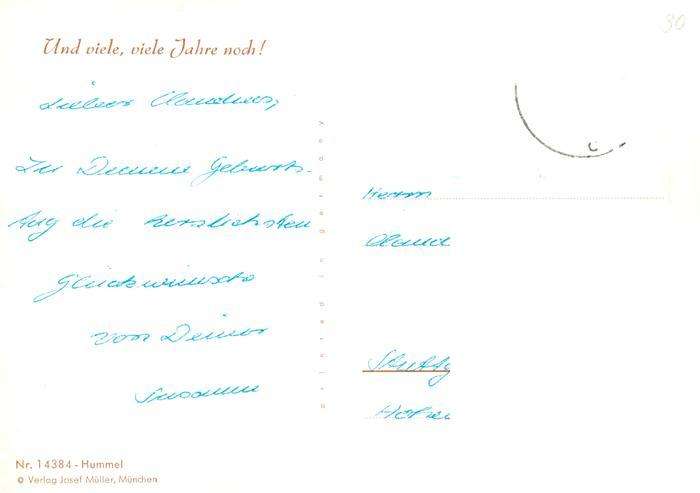 30
Und viele, viele Jahre noch!
Lieber Claudius,
Zu Deinem Geburts-
tag die herzlichsten
Glückwünsche
von Deiner
Susanne
printed in germany
Herrn
Claud
Stuttg
Nr. 14384 - Hummel
© Verlag Josef Müller, München